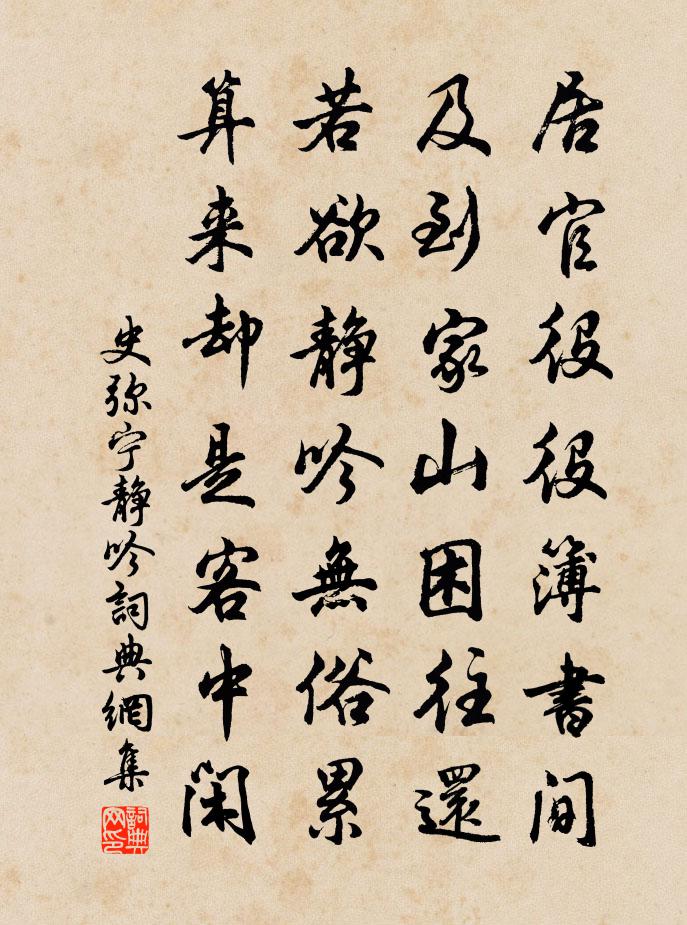 居官役役簿書間
及到家山困往還
若欲静吟無俗累
算来却是客中闲
史弥宁静吟詞典網集
詞典网印